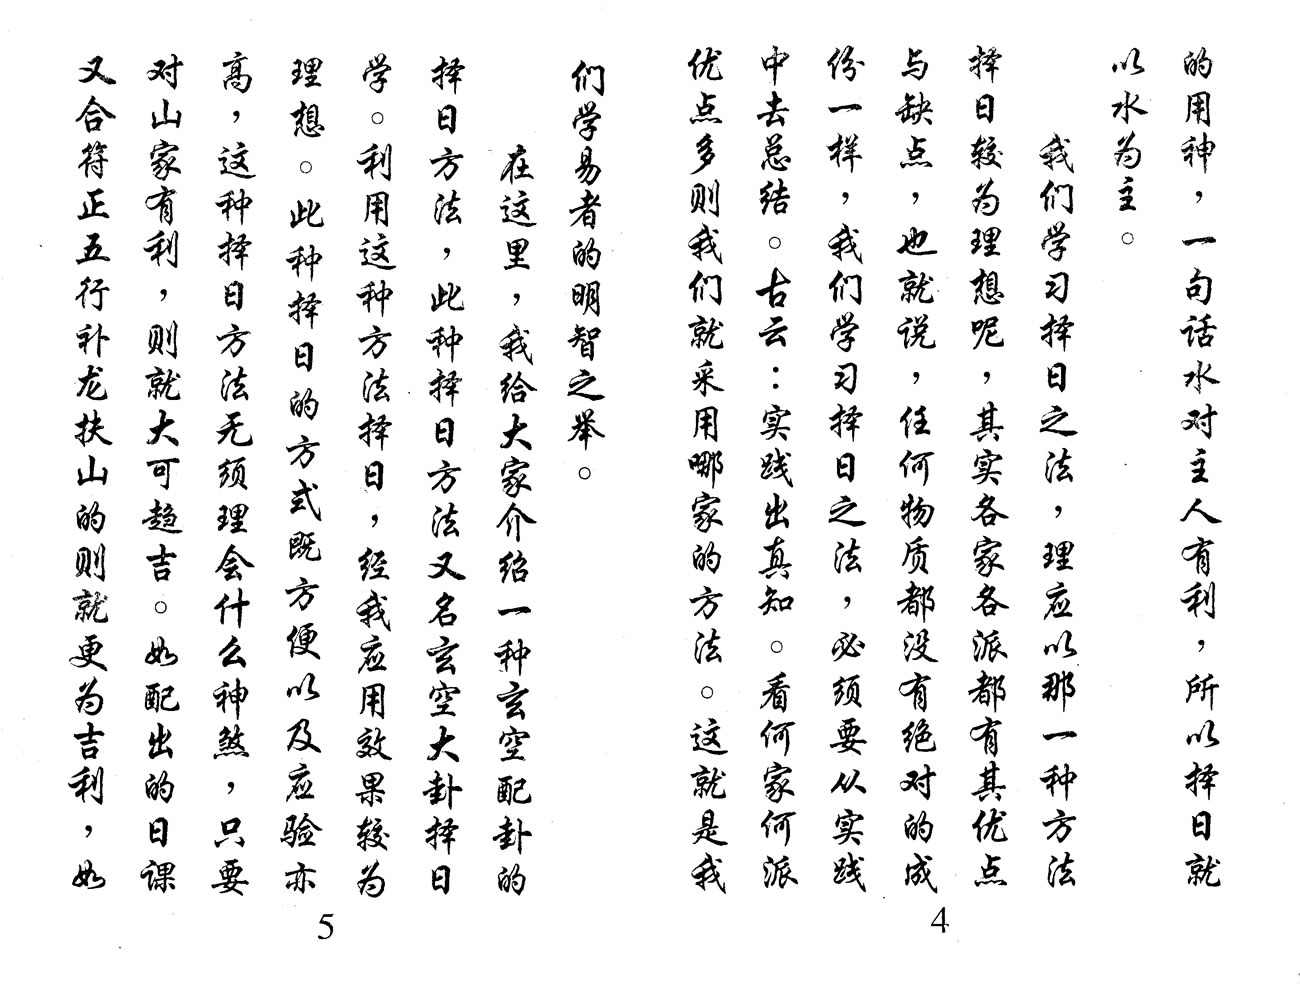 的用神，一句话水对主人有利，所以择日就
以水为主。
我们学习择日之法，理应以那一种方法
择日较为理想呢，其实各家各派都有其优点
与缺点，也就说，任何物质都没有绝对的成
份一样，我们学习择日之法，必须要从实践
中去总结。古云：实践出真知。看何家何派
优点多则我们就采用哪家的方法。这就是我
4
们学易者的明智之举。
在这里，我给大家介绍一种玄空配卦的
择日方法，此种择日方法又名玄空大卦择日
学。利用这种方法择日，经我应用效果较为
理想。此种择日的方式既方便以及应验亦
高，这种择日方法无须理会什么神煞，只要
对山家有利，则就大可趋吉。如配出的日课
又合符正五行补龙扶山的则就更为吉利，如
5